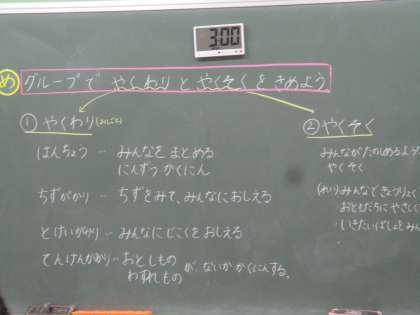 3:00
め グループで やくわり と やくそく を きめよう。
① やくわり(おしごと)
はんちょう… みんなを まとめる
にんずう かくにん
ちずがかり… ちずをみて、みんなにおしえる
とけいがかり… みんなに じこくを おしえる
てんけんがかり… おとしもの
わすれもの が、ないか かくにんする。
② やくそく
みんながたのしめるよう
やくそく
(れい) みんなときょうりょく
おともだちに やさしく
いきたいばしょをみん